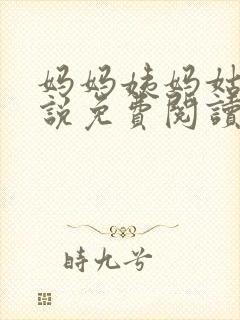 妈妈姨妈姑
說免費閱讀
時九兮